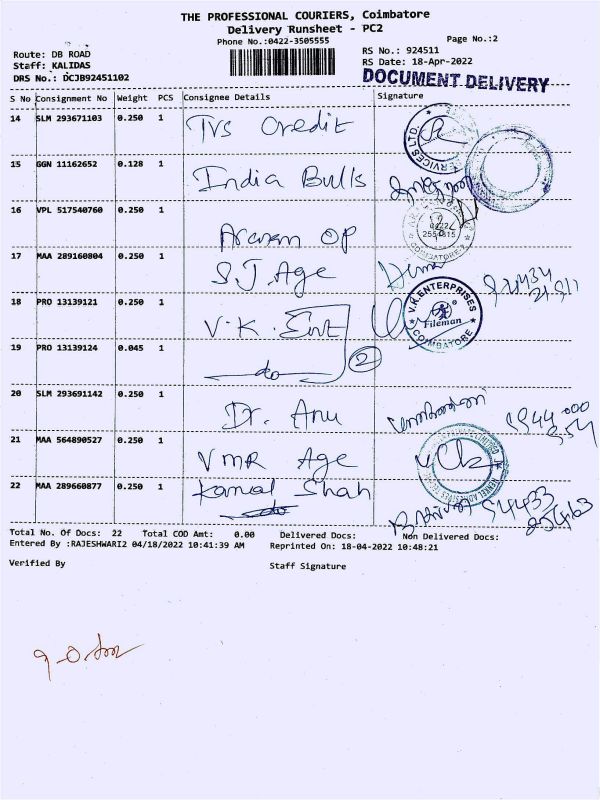 THE PROFESSIONAL COURIERS, Coimbatore
Delivery Runsheet - PC2
Phone No.:0422-3505555
Page No.:2
Route: DB ROAD
RS No.: 924511
Staff: KALIDAS
RS Date: 18-Apr-2022
DRS No.: DCJB92451102
DOCUMENT DELIVERY
S No Consignment No Weight PCS Consignee Details Signature
14 SLM 293671103 0.250 1 TVS Credit
SERVICES LTD.
15 GGN 11162652 0.128 1 India Bulls
16 VPL 517540760 0.250 1 OP
COIMBATORE
17 MAA 289160804 0.250 1 S.J. Age
18 PRO 13139121 0.250 1 V.K. Ent
V.K. ENTERPRISES
Fileman
COIMBATORE
19 PRO 13139124 0.045 1 do 2
20 SLM 293691142 0.250 1 Dr. Anu
21 MAA 564890527 0.250 1 VMR Age
22 MAA 289660877 0.250 1 Kamal Shah
do
Total No. Of Docs: 22 Total COD Amt: 0.00 Delivered Docs: Non Delivered Docs:
Entered By :RAJESHWARI2 04/18/2022 10:41:39 AM Reprinted On: 18-04-2022 10:48:21
Verified By Staff Signature